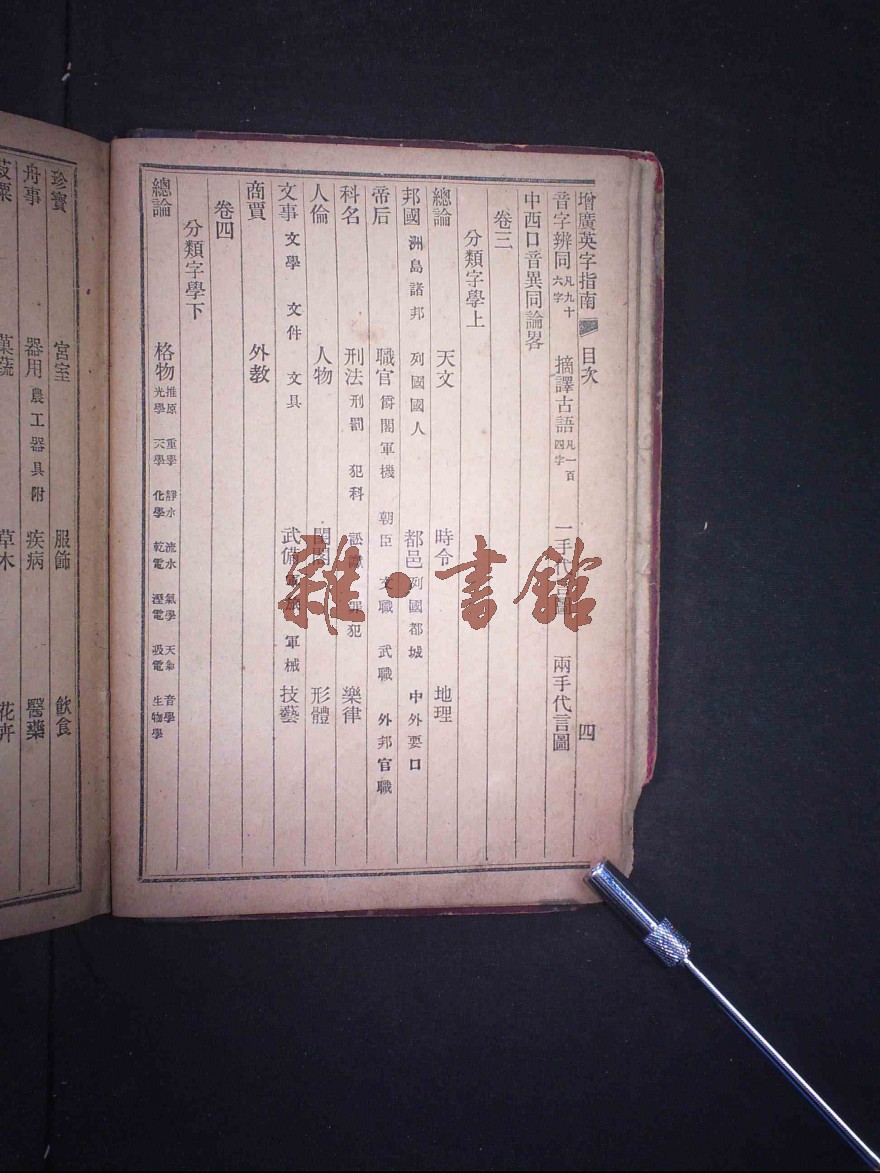 增廣英字指南 目次 四
音字辨同 凡九十六字 摘譯古語 凡一百四字 一手代言圖 兩手代言圖
中西口音異同論畧
卷三
分類字學上
總論 天文 時令 地理
邦國 洲島諸邦 列國國人 都邑 列國都城 中外要口
帝后 職官 爵閣軍機 朝臣 文職 武職 外邦官職
科名 刑法 刑罰 犯科 訟讞 罪犯 樂律
人倫 人物 閨閣 形體
文事 文學 文件 文具 武備 軍旅 軍械 技藝
商賈 外教
卷四
分類字學下
總論 格物 推原 光學 重學 天學 靜水 化學 流水 乾電 氣學 溼電 天氣 吸電 音學 生物學
珍寶 宮室 服飾 飲食
舟事 器用 農工器具附 疾病 醫藥
菽粟 菓蔬 草木 花卉
雜·書館